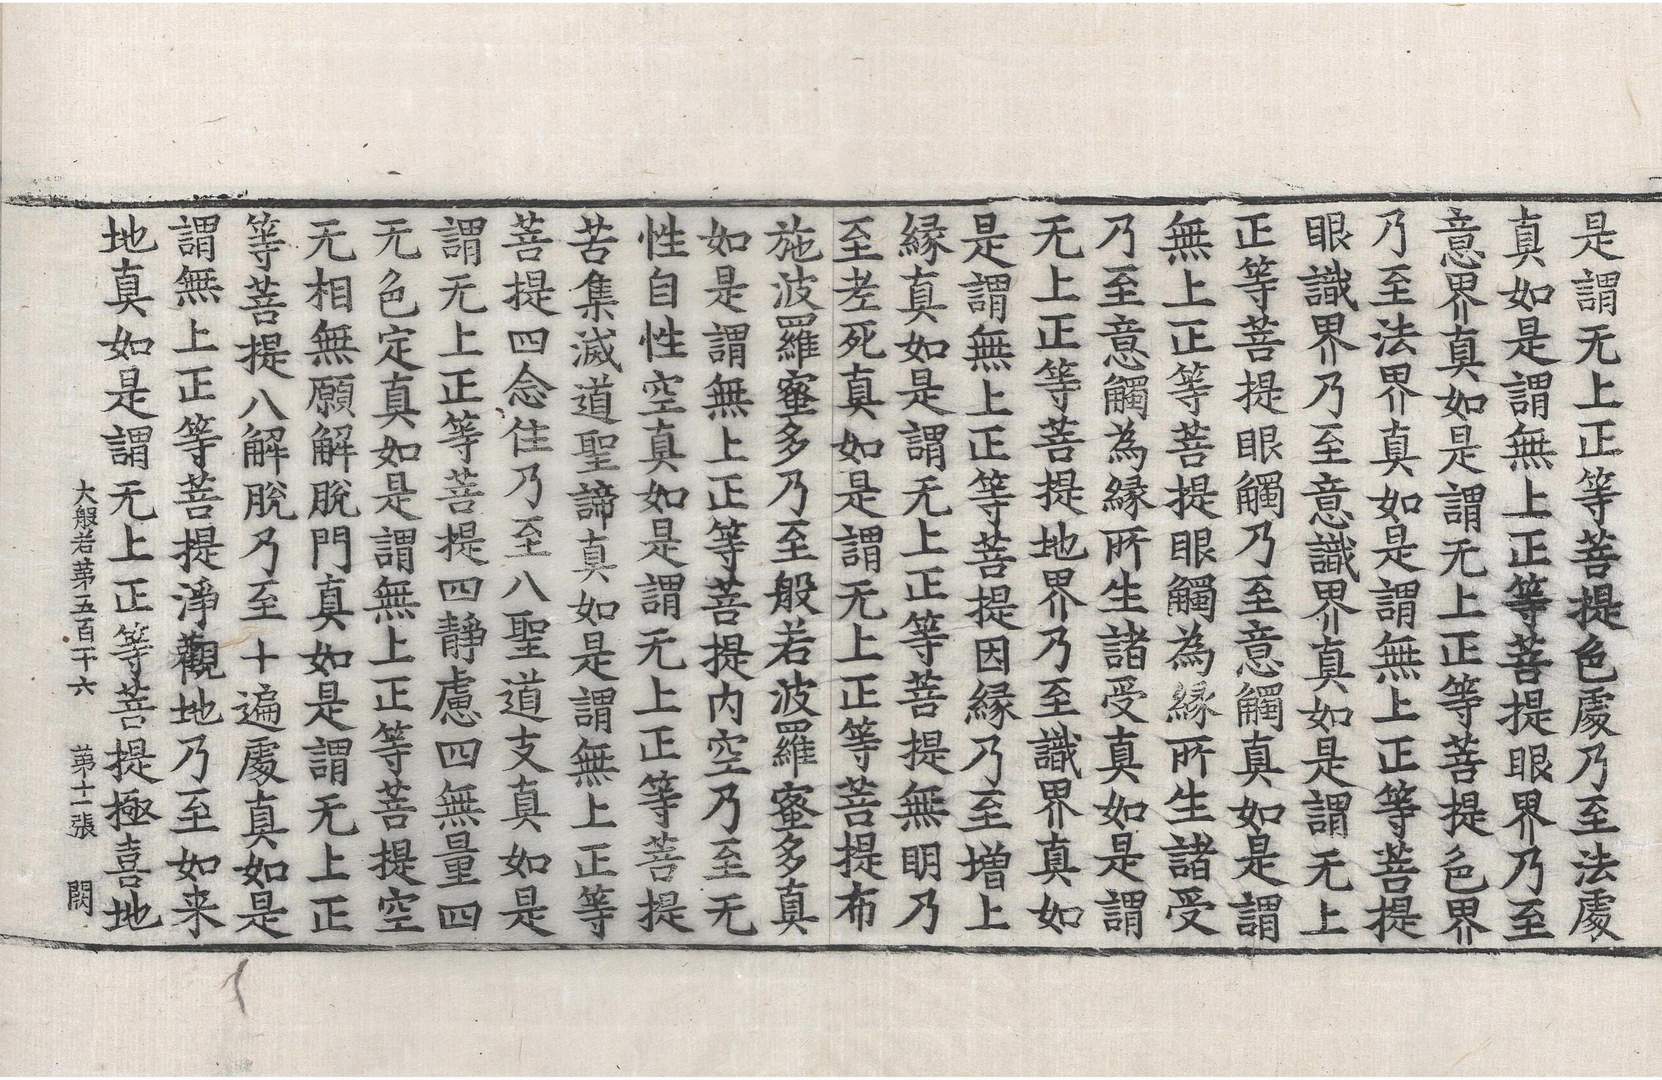 是謂无上正等菩提色處乃至法處
真如是謂無上正等菩提眼界乃至
意界真如是謂无上正等菩提色界
乃至法界真如是謂無上正等菩提
眼識界乃至意識界真如是謂无上
正等菩提眼觸乃至意觸真如是謂
無上正等菩提眼觸為縁所生諸受
乃至意觸為縁所生諸受真如是謂
无上正等菩提地界乃至識界真如
是謂無上正等菩提因縁乃至增上
縁真如是謂无上正等菩提無明乃
至老死真如是謂无上正等菩提布
施波羅蜜多乃至般若波羅蜜多真
如是謂無上正等菩提内空乃至无
性自性空真如是謂无上正等菩提
苦集滅道聖諦真如是謂無上正等
菩提四念住乃至八聖道支真如是
謂无上正等菩提四靜慮四無量四
无色定真如是謂無上正等菩提空
无相無願解脫門真如是謂无上正
等菩提八解脫乃至十遍處真如是
謂無上正等菩提淨觀地乃至如来
地真如是謂无上正等菩提極喜地
大般若第五百十六 第十一張 闕